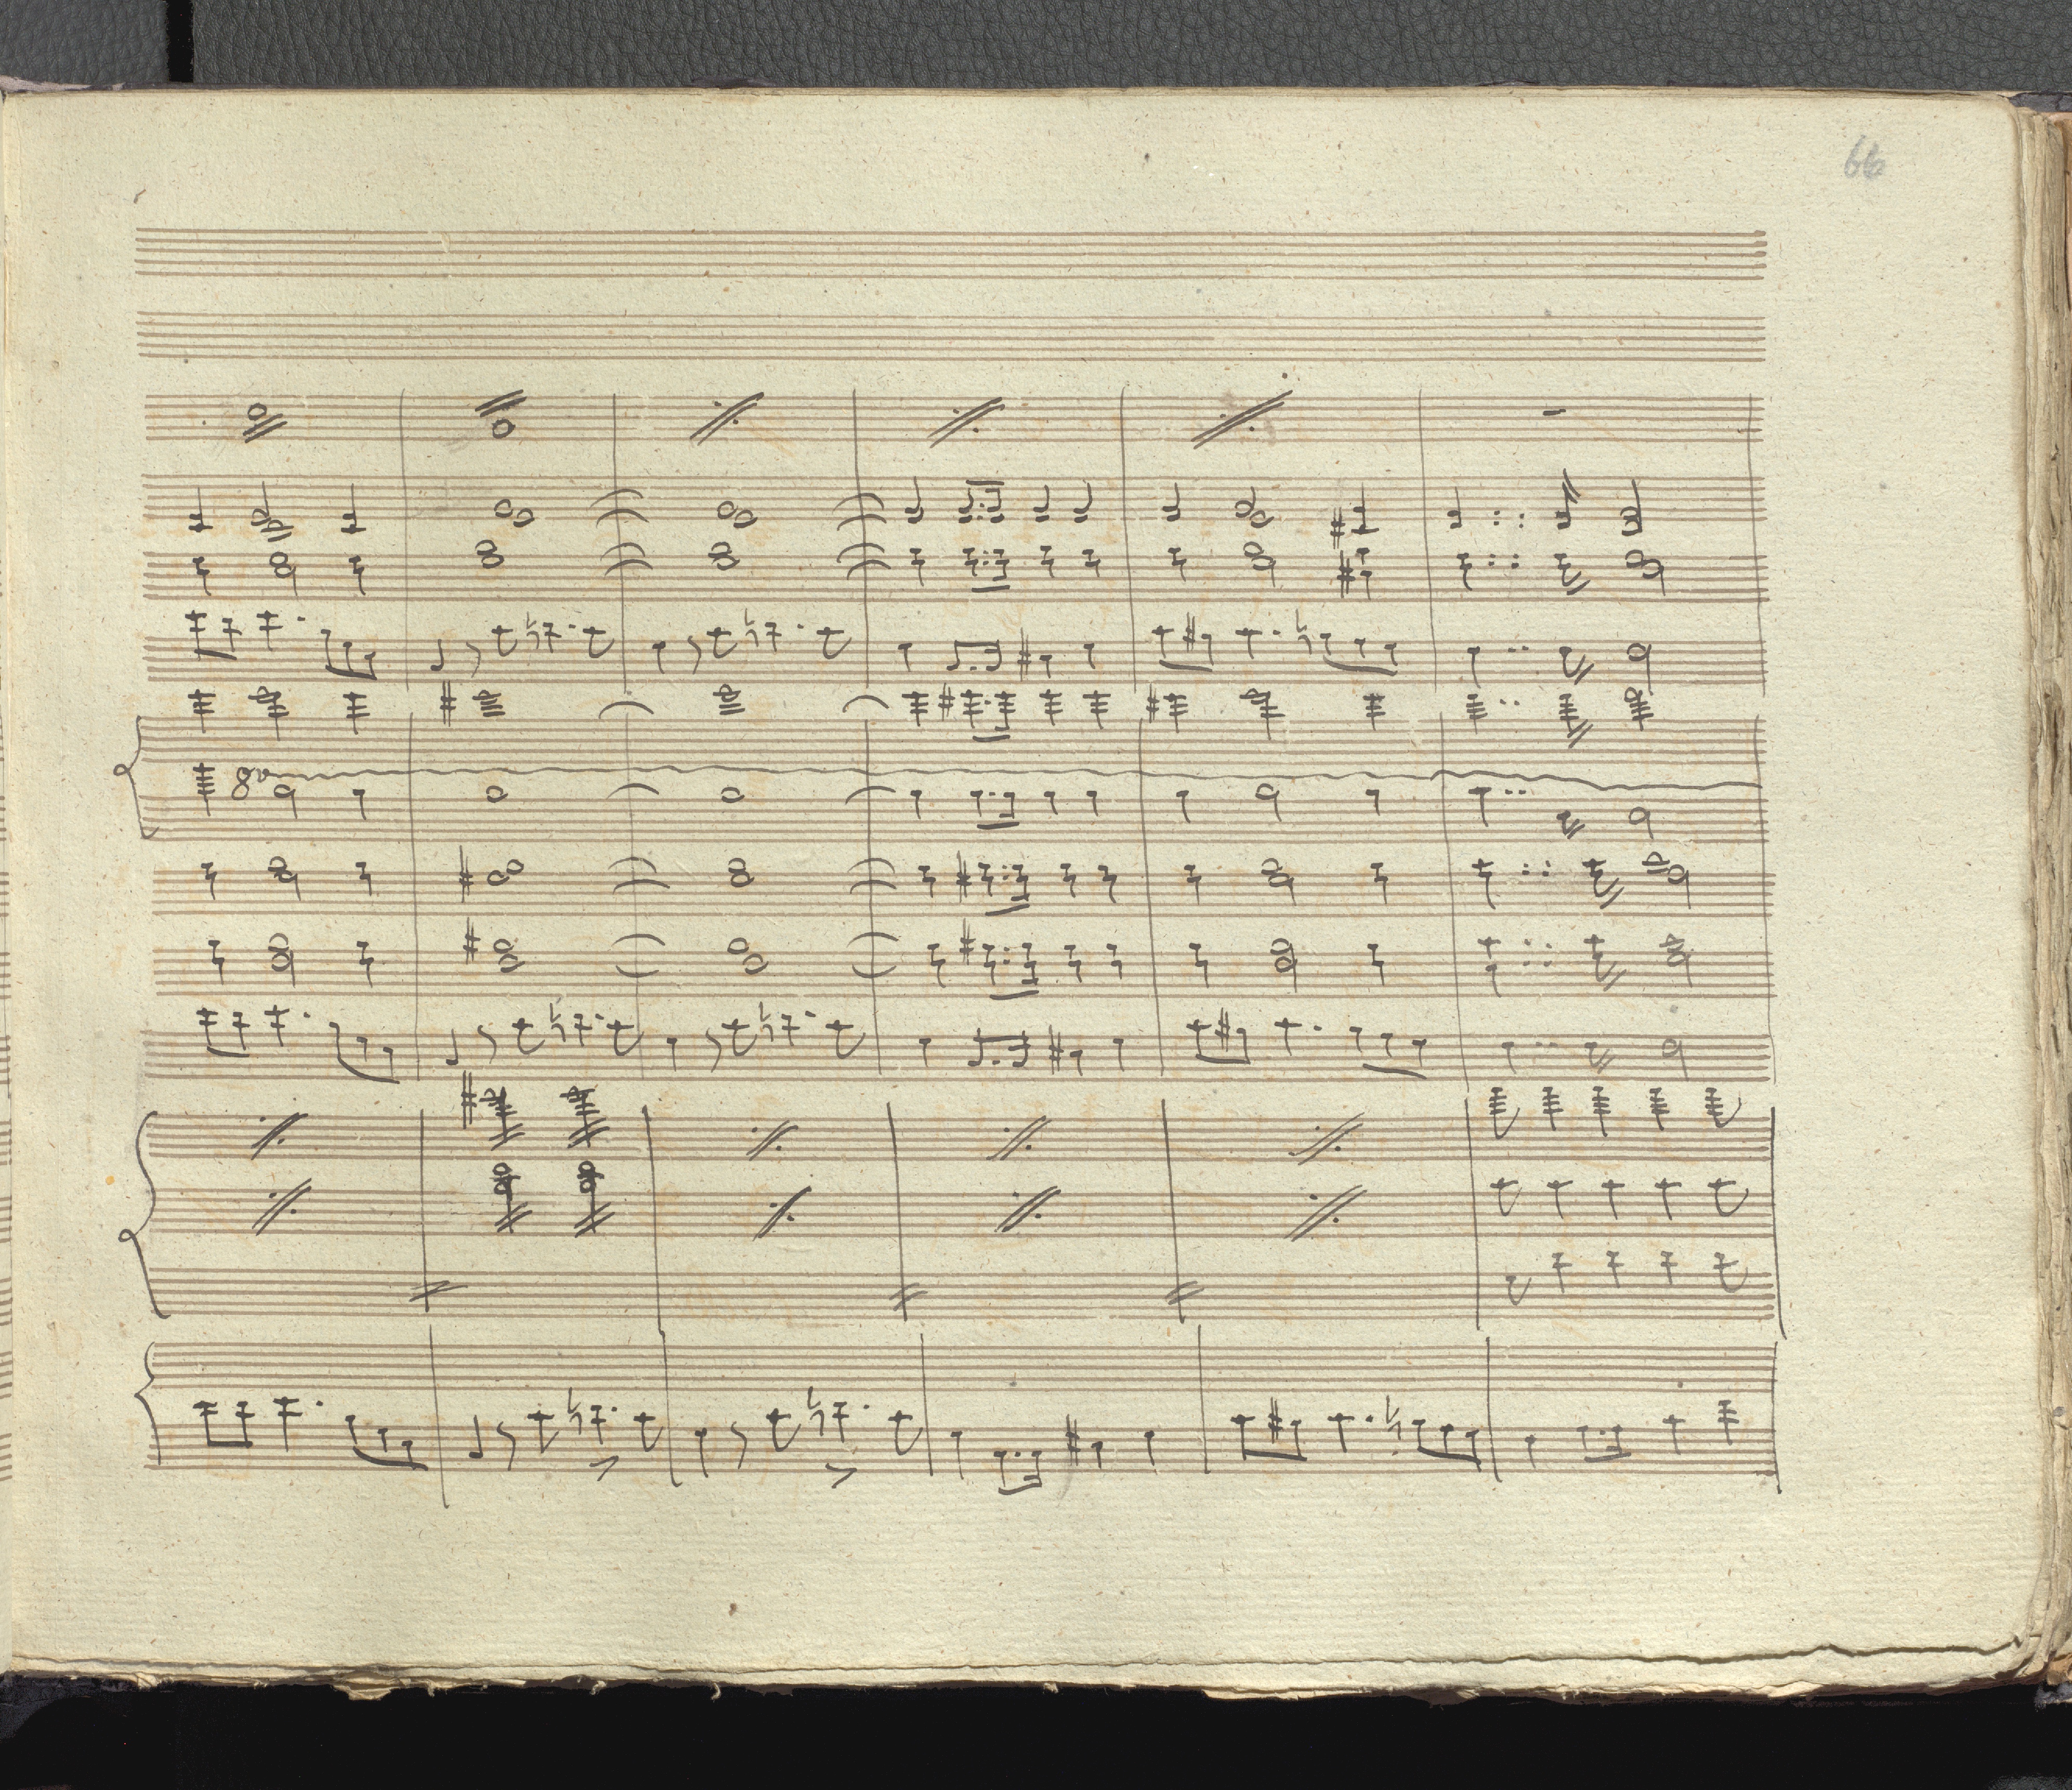 66
8va